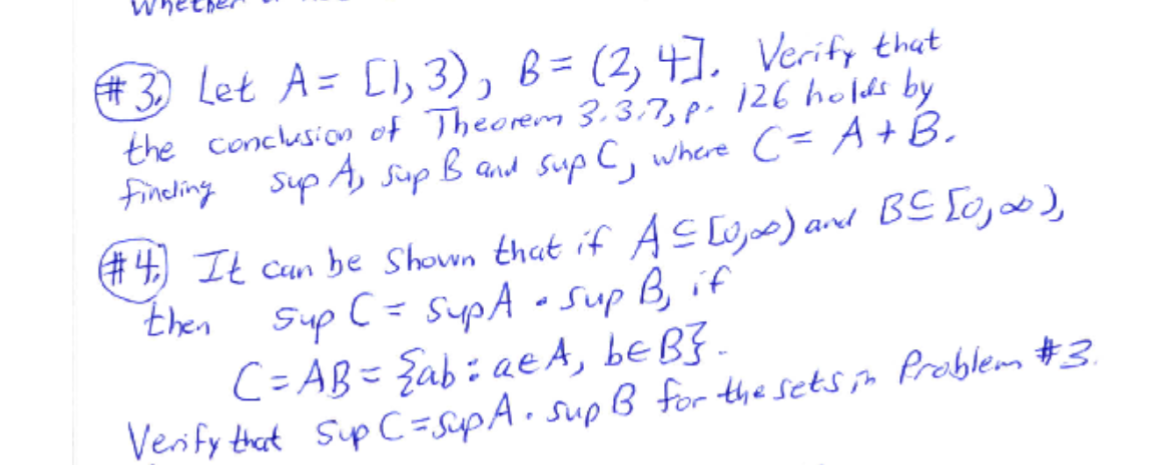 #3. Let A = [1, 3), B = (2, 4]. Verify that
the conclusion of Theorem 3.3.7, p. 126 holds by
finding sup A, sup B and sup C, where C = A + B.
#4. It can be shown that if A ⊆ [0, ∞) and B ⊆ [0, ∞),
then sup C = sup A • sup B, if
C = AB = {ab : a ∈ A, b ∈ B}.
Verify that sup C = sup A • sup B for the sets in Problem #3.